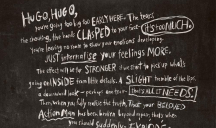 HUGO, HUGO,
you're going big far too EARLY HERE. The tears,
the shouting, the hands CLASPED to your face- IT'S TOO MUCH.
You're leaving no room to show your emotions developing.
JUST internalise your feelings MORE.
The effect will be far STRONGER if we start to pick up what's
going on INSIDE from little details. A SLIGHT tremble of the lips,
a downward look - perhaps one tear - THAT'S ALL IT NEEDS.
Then, when you fully realise the truth, that your BELOVED
Action Man has been broken beyond repair, that's when
you should suddenly EXPLODE